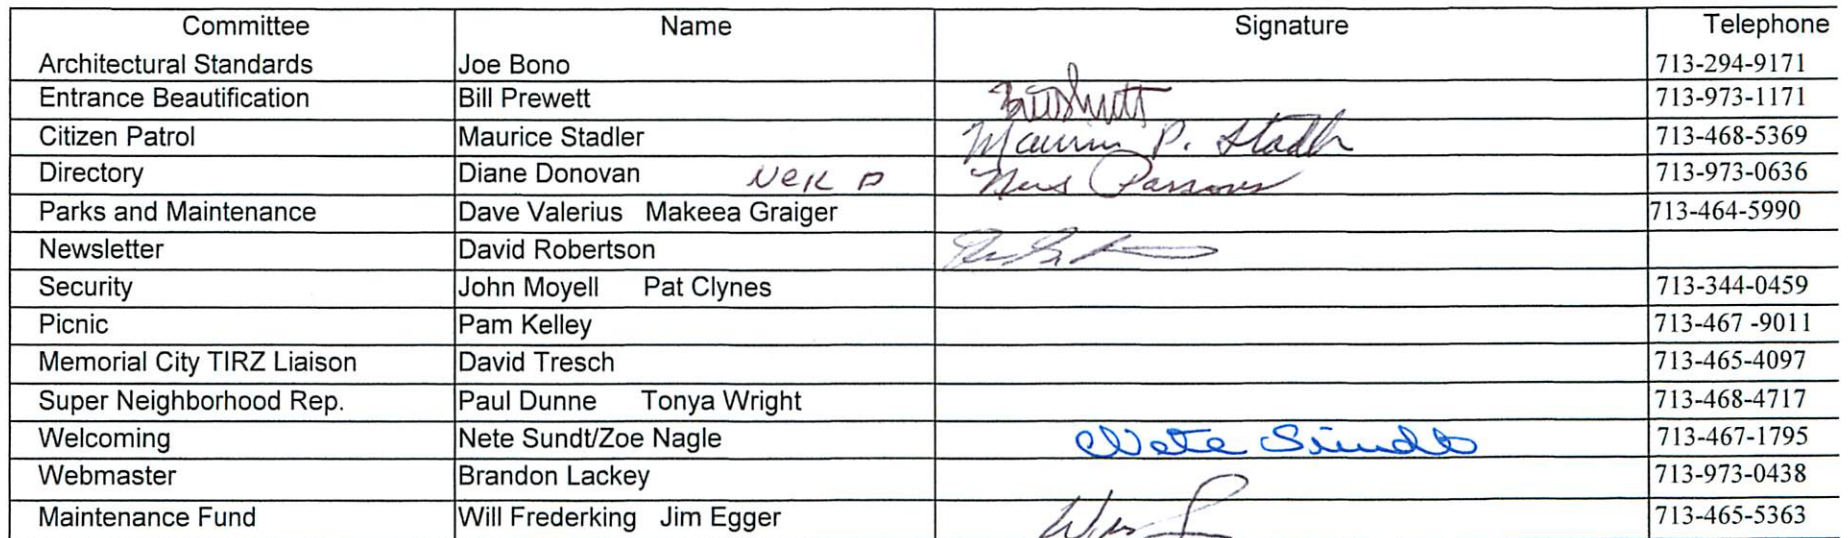 Committee Name Signature Telephone
Architectural Standards Joe Bono 713-294-9171
Entrance Beautification Bill Prewett 713-973-1171
Citizen Patrol Maurice Stadler Maurice P. Stadler 713-468-5369
Directory Diane Donovan Parsons 713-973-0636
Parks and Maintenance Dave Valerius Makeea Graiger 713-464-5990
Newsletter David Robertson
Security John Moyell Pat Clynes 713-344-0459
Picnic Pam Kelley 713-467 -9011
Memorial City TIRZ Liaison David Tresch 713-465-4097
Super Neighborhood Rep. Paul Dunne Tonya Wright 713-468-4717
Welcoming Nete Sundt/Zoe Nagle Nete Sundt 713-467-1795
Webmaster Brandon Lackey 713-973-0438
Maintenance Fund Will Frederking Jim Egger 713-465-5363